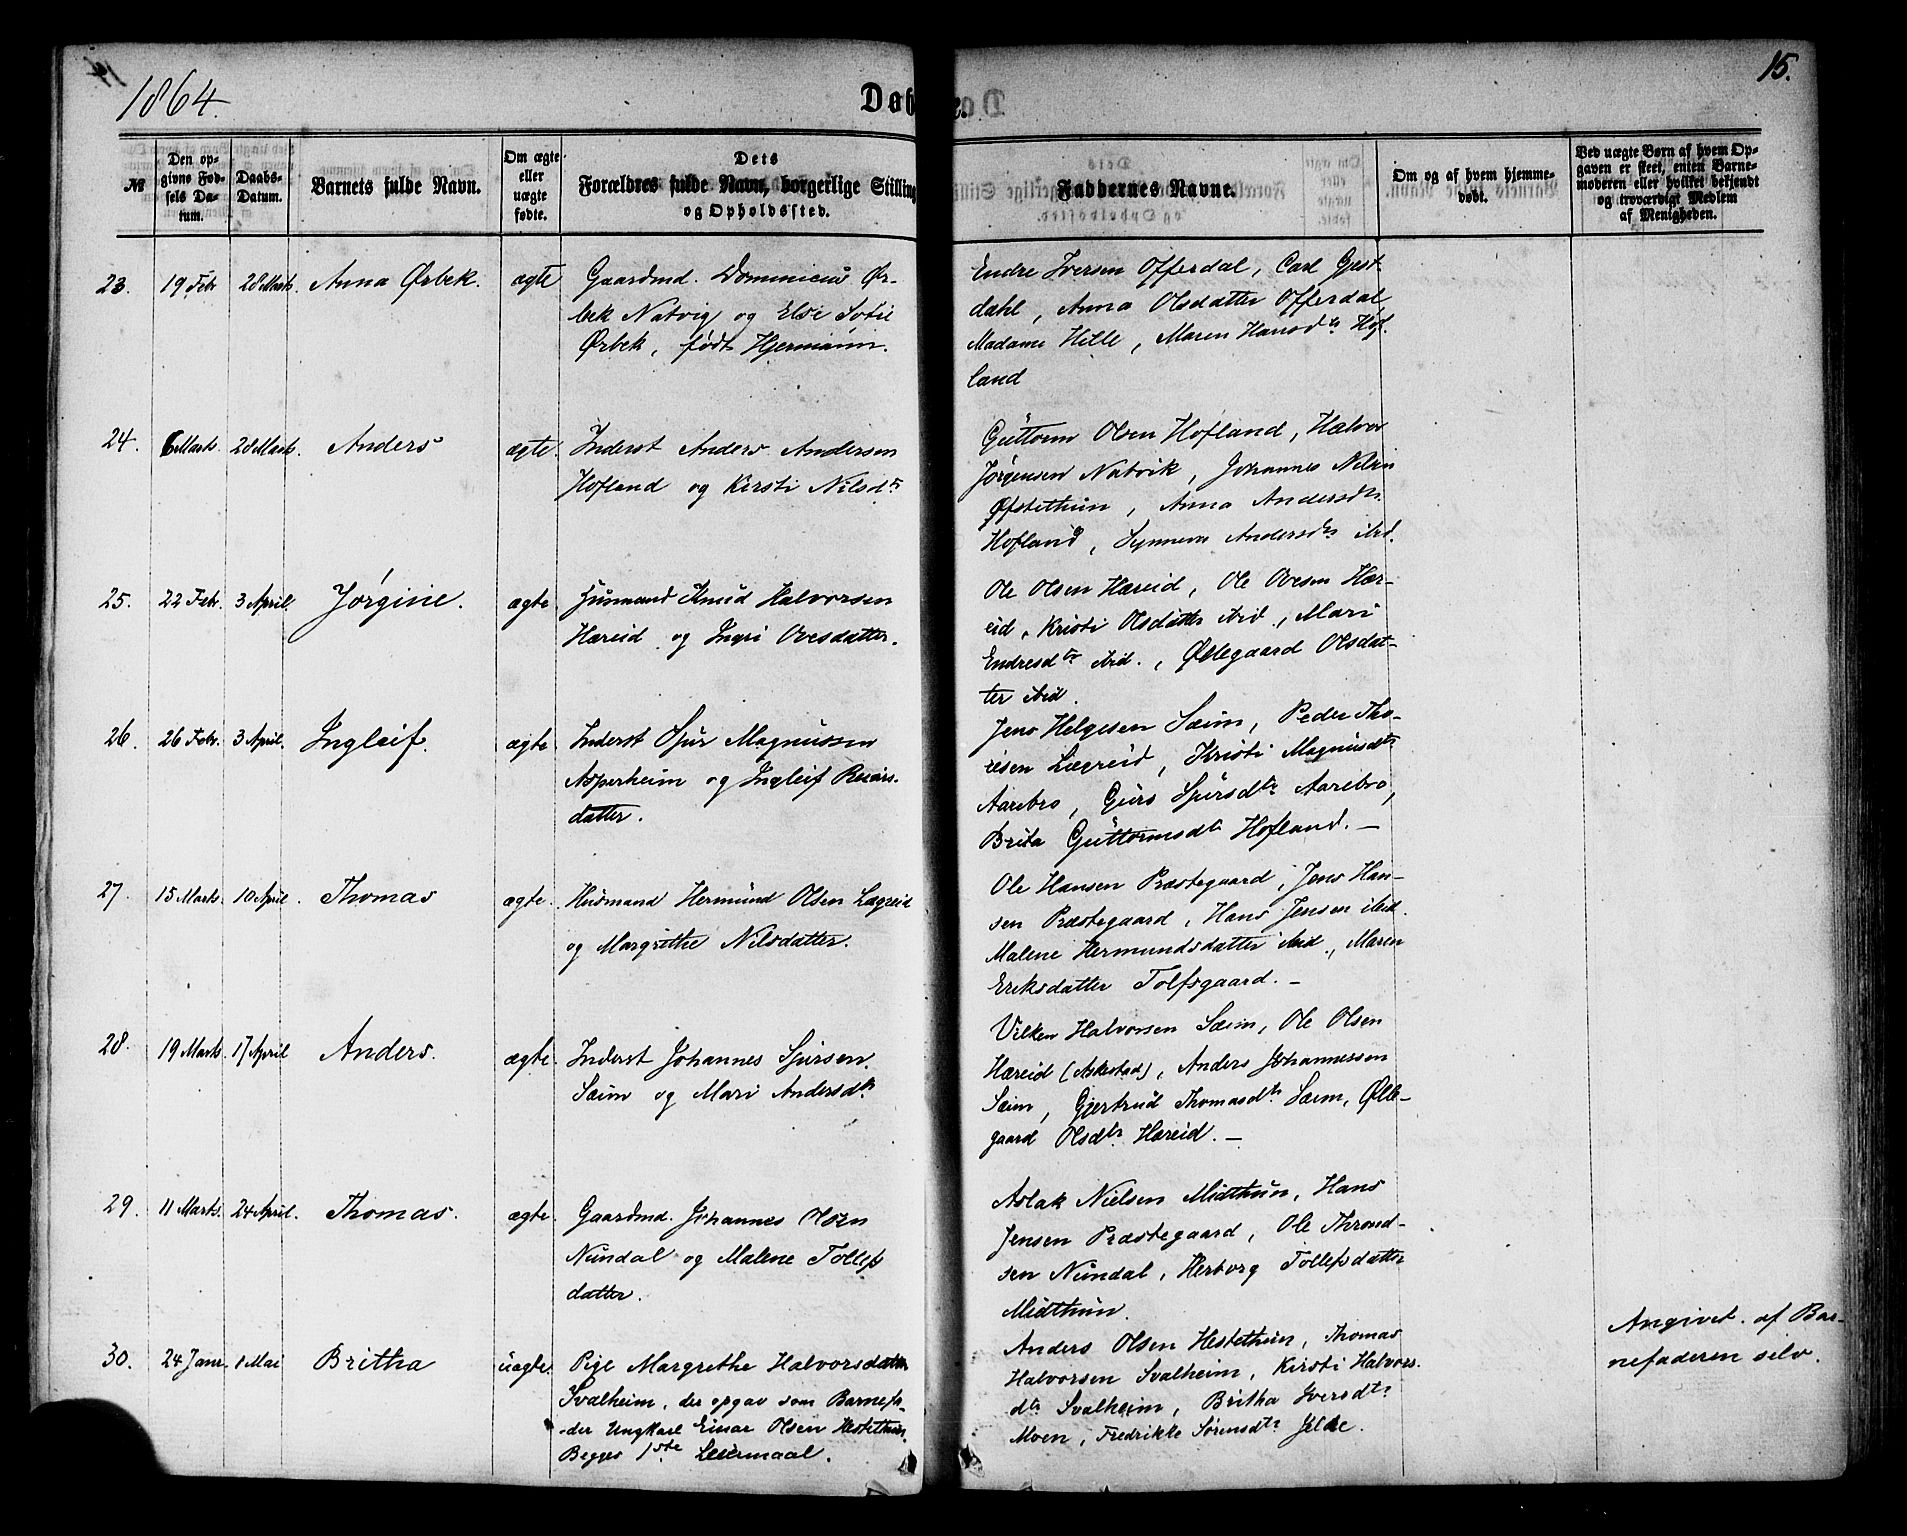 1864.
Døbte.
15.
№
Den opgivne Fødsels Datum.
Daabs-Datum.
Barnets fulde Navn.
Om ægte eller uægte fødte.
Dets Forældres fulde Navn, borgerlige Stilling og Opholdssted.
Faddernes Navne.
Om og af hvem hjemmedøbt.
Ved uægte Børn af hvem Opgaven er skeet, enten Barnemoderen eller hvilket bekjendt og troværdigt Medlem af Menigheden.
23. 19 Febr 28 Marts. Anna Ørbek. ægte
Gaardmd. Dominicus Ør-
bek Natvig og Else Sofie
Ørbek, født Hjermann.
Endre Iversen Offerdal, Carl Gjest-
dahl, Anna Olsdatter Offerdal
Madame Hille, Maren Hansdtr Hof-
land
24. 6 Marts. 28 Marts. Anders ægte.
Inderst Anders Andersen
Hofland og Kirsti Nilsdtr
Guttorm Olsen Hofland, Halvor
Jørgensen Natvik, Johannes Nilsen
Øfstethun, Anna Andersdtr
Hofland, Synneva Andersdtr ibid.
25. 22 Febr. 3 April. Jørgine. ægte
Husmand Knud Halvorsen
Hæreid og Ingri Ovesdatter.
Ole Olsen Hæreid, Ole Ovesen Hær-
eid, Kristi Olsdatter ibid., Mari
Endresdtr ibid., Øllegaard Olsdat-
ter ibid.
26. 26 Febr. 3 April. Ingleif. ægte
Inderst Sjur Magnussen
Asperheim og Ingleif
datter.
Jens Helgesen Sæim, Peder Tho-
Lægreid, Kristi Magnusdtr
Aarebro, Guro Sjursdtr Aarebro,
Brita Guttormsdtr Hofland. —
27. 15 Marts. 10 April. Thomas ægte.
Husmand Hermund Olsen Lægreid
og Margrethe Nilsdatter.
Ole Hansen Præstegaard, Jens Han-
sen Præstegaard, Hans Jensen ibid.
Malene Hermundsdatter ibid., Maren
Eriksdatter Tolfsgaard. —
28. 19 Marts. 17 April Anders. ægte.
Inderst Johannes Sjursen
Sæim og Mari Andersdtr
Vilken Halvorsen Sæim, Ole Olsen
Hæreid (Askestad), Anders Johannessen
Sæim, Gjertrud Thomasdtr Sæim, Ølle-
gaard Olsdtr Hæreid. —
29. 11 Marts. 24 April. Thomas. ægte.
Gaardmd. Johannes Olsen
Nundal og Malene Tollefs
datter.
Aslak Nielsen Midthun, Hans
Jensen Præstegaard, Ole Thrond-
sen Nundal, Herborg Tollefsdatter
Midthun.
30. 24 Janr. 1 Mai Britha uægte.
Pige Margrethe Halvorsdatter
Svalheim, der opgav som Barnefa-
der Ungkarl Einar Olsen Hestethun.
Begges 1ste Leiermaal.
Anders Olsen Hestethun, Thomas
Halvorsen Svalheim, Kirsti Halvors-
dtr Svalheim, Britha Iversdtr
Moen, Fredrikke Sørensdtr Jelde.
Angivet af Bar-
nefaderen selv.